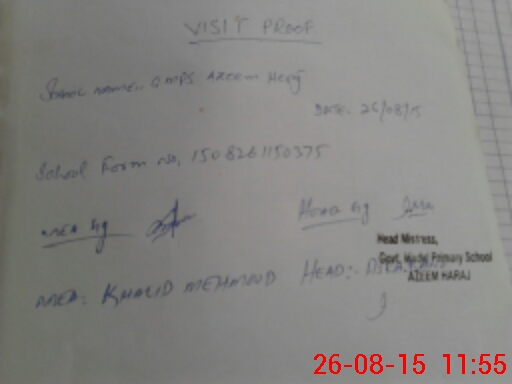 VISIT PROOF
School NAME:. GMPS AZeem Heraj
DATE. 26/08/15
School Form No, 1508261150375
AREA Sig
HEAD Sig
Head Mistress,
Govt. Model Primary School
AZEEM HARAJ
AREA: KHALID MEHMOOD HEAD:-
26-08-15 11:55